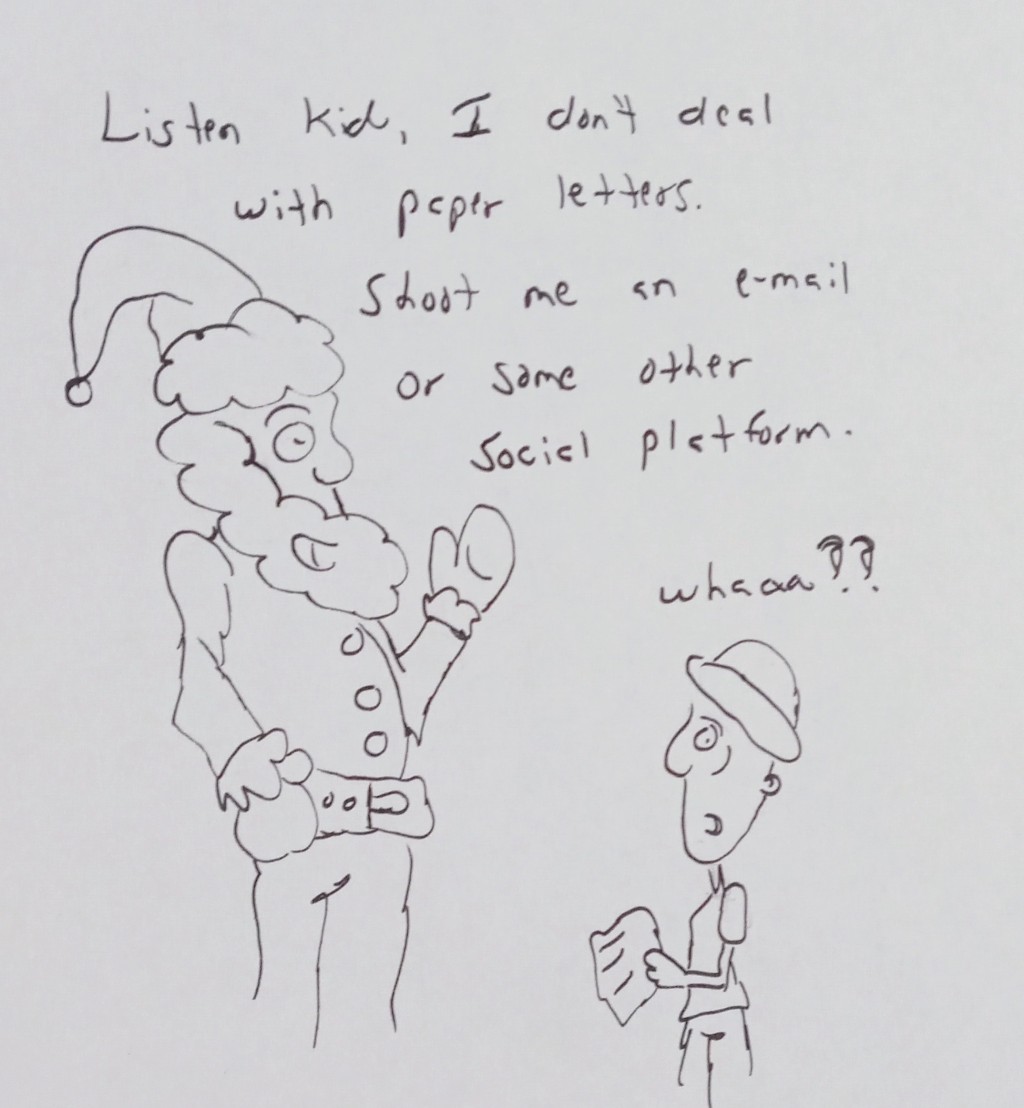 Listen kid, I don't deal
with paper letters.
Shoot me an e-mail
or some other
social platform.
whaaa??